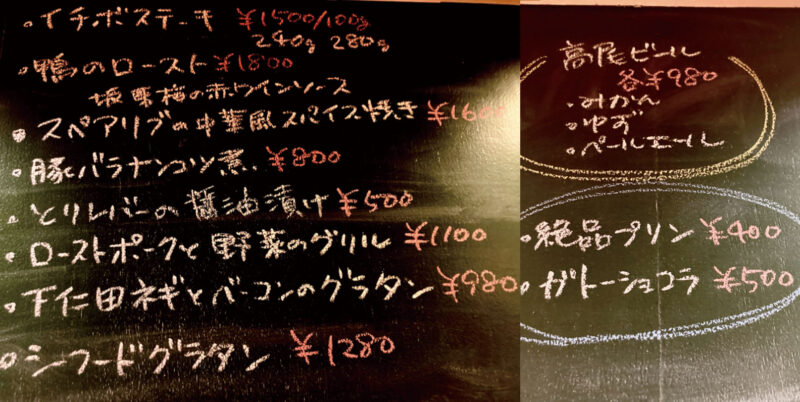 ・イチボステーキ ¥1500/100g
240g 280g
・鴨のロースト ¥1800
坂東梅の赤ワインソース
・スペアリブの中華風スパイス焼き ¥1600
・豚バラナンコツ煮 ¥800
・とりレバーの醤油漬け ¥500
・ローストポークと野菜のグリル ¥1100
・下仁田ネギとベーコンのグラタン ¥980
・シーフードグラタン ¥1280
高尾ビール
各¥980
・みかん
・ゆず
・ペールエール
・絶品プリン ¥400
・ガトーショコラ ¥500